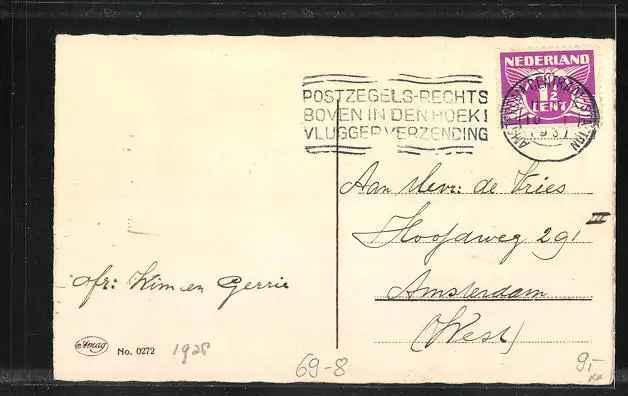 NEDERLAND
1½
CENT
AMSTERDAM CENTRAAL STATION
1937
POSTZEGELS-RECHTS
BOVEN IN DEN HOEK!
VLUGGER VERZENDING
Aan Mevr: de Vries
Hoofdweg 291 III
Amsterdam
(West)
afz: Wim en Gerrie
Amag
No. 0272
1925
69-8
9,-
xx